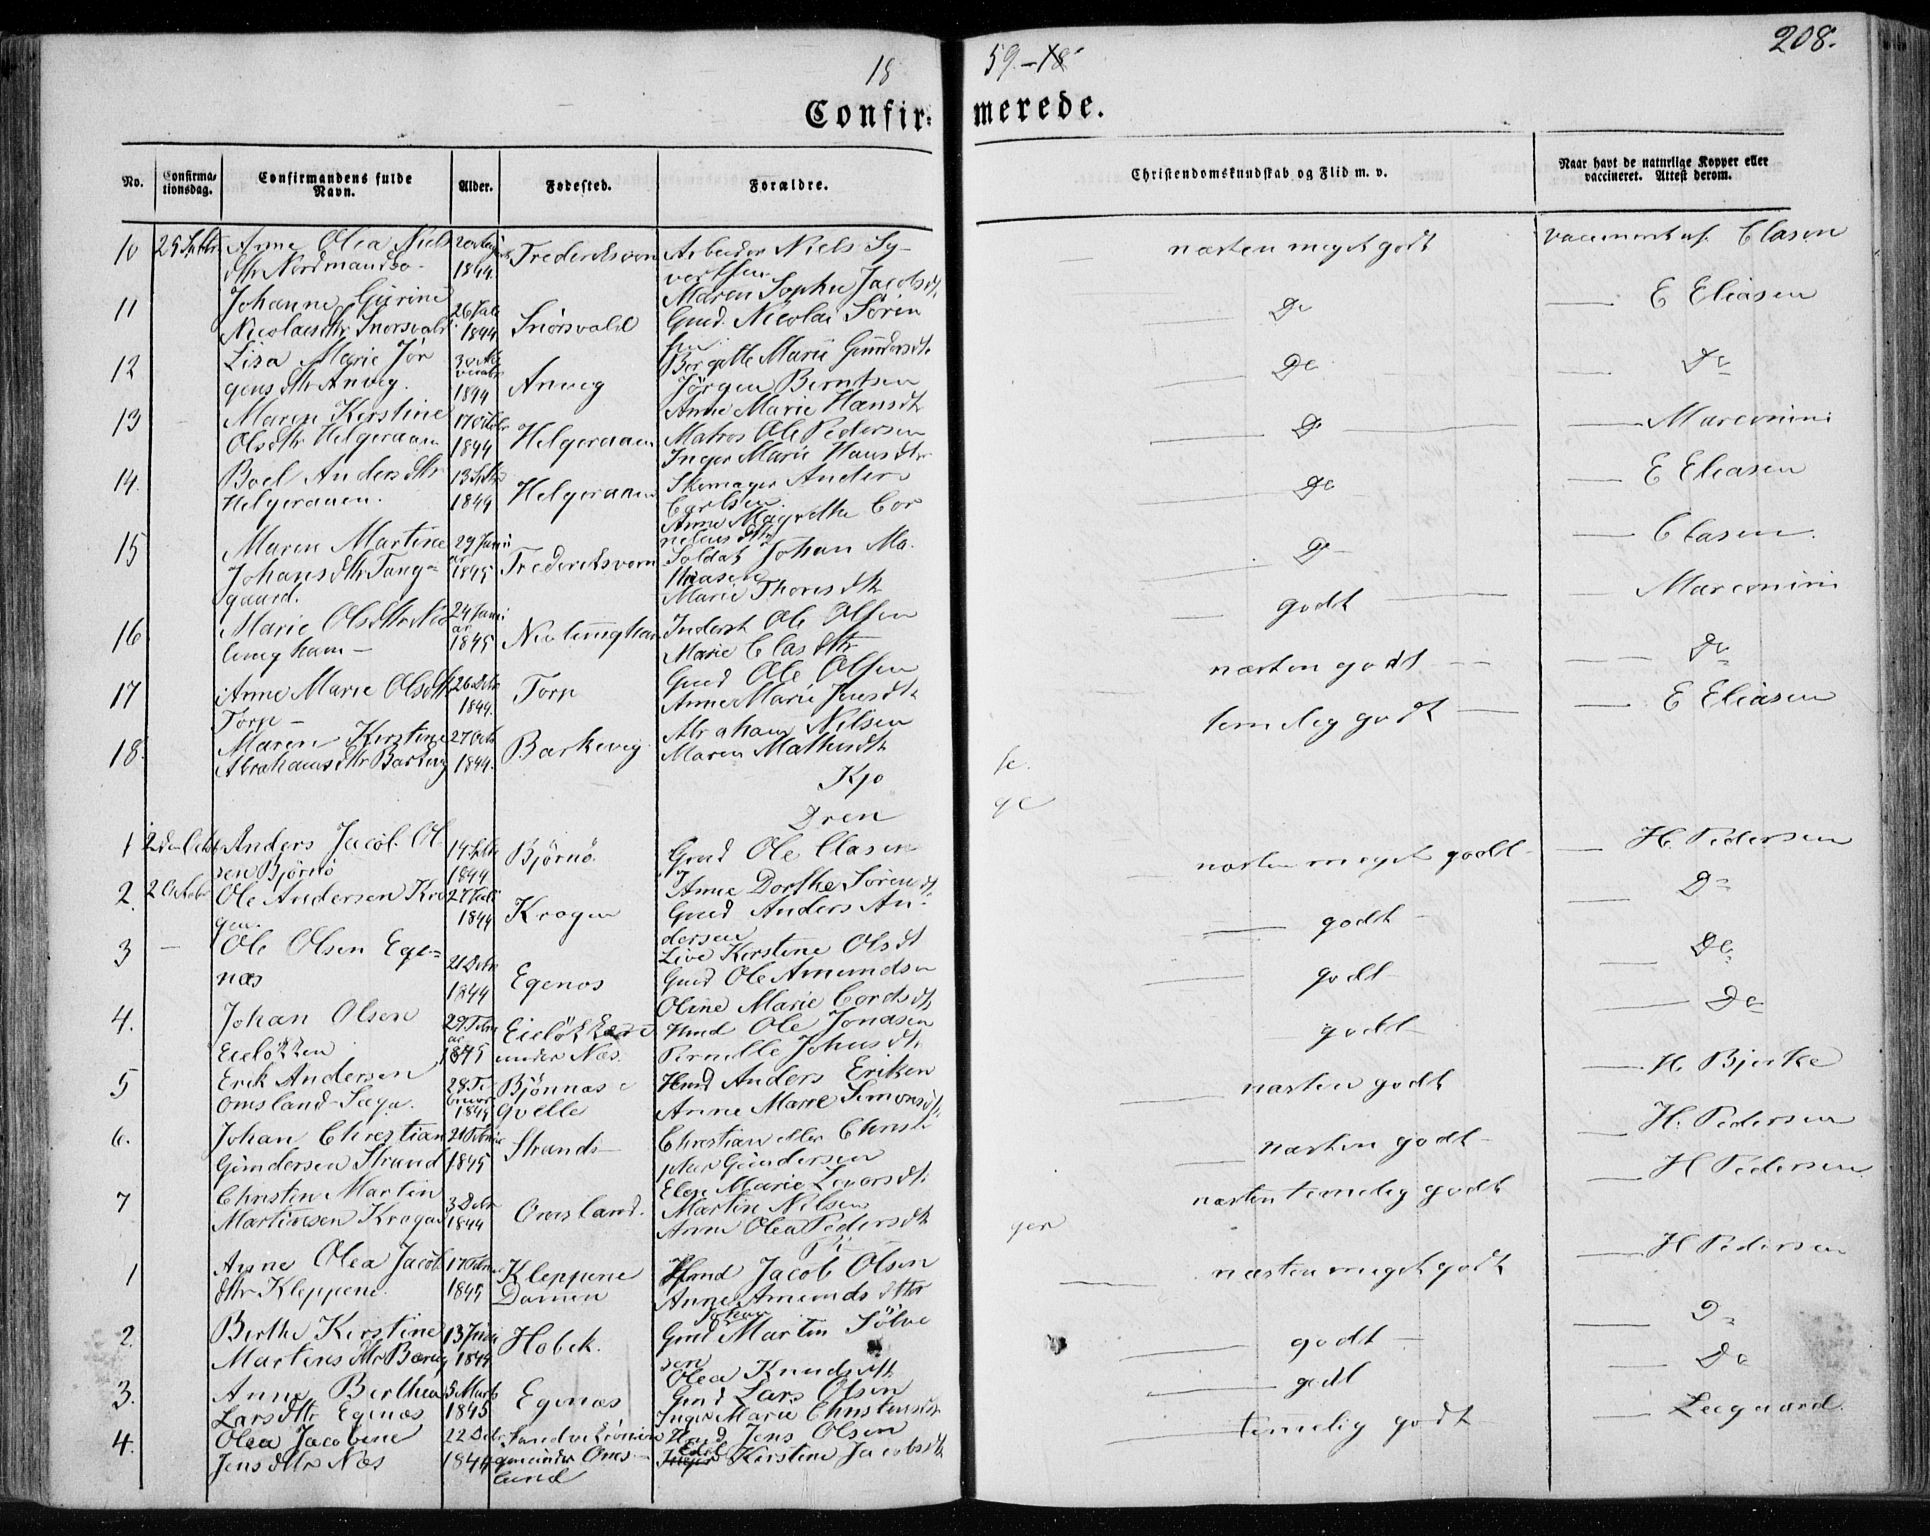 208.
18 59.-18
Confir- merede.
No.
Confirma-
tionsdag.
Confirmandens fulde
Navn.
Alder.
Fødested.
Forældre.
Christendomskundskab og Flid m. v.
Naar havt de naturlige Kopper eller
vaccineret. Attest derom.
10 25 Septbr Anne Olea Niels
dtr Nordmandbo-
1844 Frederiksværn Arbeider Niels Sy-
vertsen
Maren Sophie Jacobsdt.
næsten meget godt vaccineret af Clasen
11 Johanne Gurine
Nicolaisdtr Snørsvald
26 Juli
1844 Snørsvald Gmd. Nicolai Søren
sen
Bergitte Marie Gundersdt.
Do E Eliasen
12 Lisa Marie Jør
gensdtr Anvig.
1844 Anvig Jörgen Berntsen
Anne Marie Hansdt
Do Do
13 Maren Kirstine
Olsdtr Helgeraaen
17 Octobr
1844 Helgeraaen Matros Ole Pedersen
Inger Marie Hansdtr
D Marconini
14. Boel Andersdtr
Helgeraaen.
13 Septbr
1844 Helgeraaen Skomager Anders
Carlsen
Anne Magrethe Cor
neliusdtr
Do E Eliasen
15 Maren Martine
Johansdtr Tang-
gaard.
29 Janu
ar
1845 Frederiksværn Soldat Johan Ma-
thiasen
Marie Thoresdtr
D- Clasen.
16 Marie Olsdtr Nev
lunghavn-
24 Janu
ar
1845 Nevlunghavn Inderst Ole Olsen
Marie Clasdtr
godt Marconini
17 Anne Marie Olsdtr
Torp-
26 Decbr
1844. Torp Gmd Ole Olsen
Anne Marie Jensdt
næsten godt Do
18. Maren Kirstine
Abrahamsdtr Barkevig
27 Octbr
1844. Barkevig Abraham Nilsen
Maren Mathisdt
temelig godt E Eliasen
Kjo se.
Dren ge
1 2den Octbr Anders Jacob Ol
sen Bjørnø
14 Septbr
1844 Bjørnø Gmd Ole Clasen
Anne Dorthe Sørensdt.
næsten meget godt H. Pedersen
2. 2 Octobr Ole Andersen Kro
gen.
27 Juli
1844 Krogen Gmd Anders An-
dersen
Live Kirstine Olsdt
godt D-
3 - Ole Olsen Ege-
næs
21 Decbr
1844 Egenæs Gmd Ole Amundsen
Oline Marie Cordsdt
godt Do
4. Johan Olsen
Eieløkken
29 Febru
ar
1845 Eieløkken
under Næs. Hmd Ole Jonasen
Pernille Johnsdt
godt Do
5 Erik Andersen
Omsland-Saga.
1844 Bjönnæs
Hmd Anders Eriksen
Anne Marie Simonsdt.
næsten godt H. Bjerke
6. Johan Christian
Gundersen Strand
1845 Strand- Christian eller Christ
pher Gundersen
Else Marie Livorsdt.
næsten godt H. Pedersen
7 Christen Martin
Martinesen Krogen
3 Decbr
1844 Omsland. Martin Nilsen
Anne Olea Pedersdt
næsten temelig godt H Pedersen
Pi ger
1 Anne Olea Jacob
dtr Kleppene.
17 Febru
1845 Kleppene
Hmd Jacob Olsen
Anne Amundsdtr
næsten meget godt H Pedersen
2. Berthe Kirstine
Martinsdtr
13 Juni
1844 Hobek. Gmd Johan Martin Sölve
sen
Olea Knudsdt
godt D-
3. Anne Berthea
Larsdtr Egenæs
5 Marts
1845 Egenæs Gmd Lars Olsen
Inger Marie Christensdt
godt Do
4. Olea Jacobine
Jensdtr Næs
22 Decbr
1844 under Oms-
land Hmd Jens Olsen
Edel Kirstine Jacobsdt
temelig godt Leegaard.